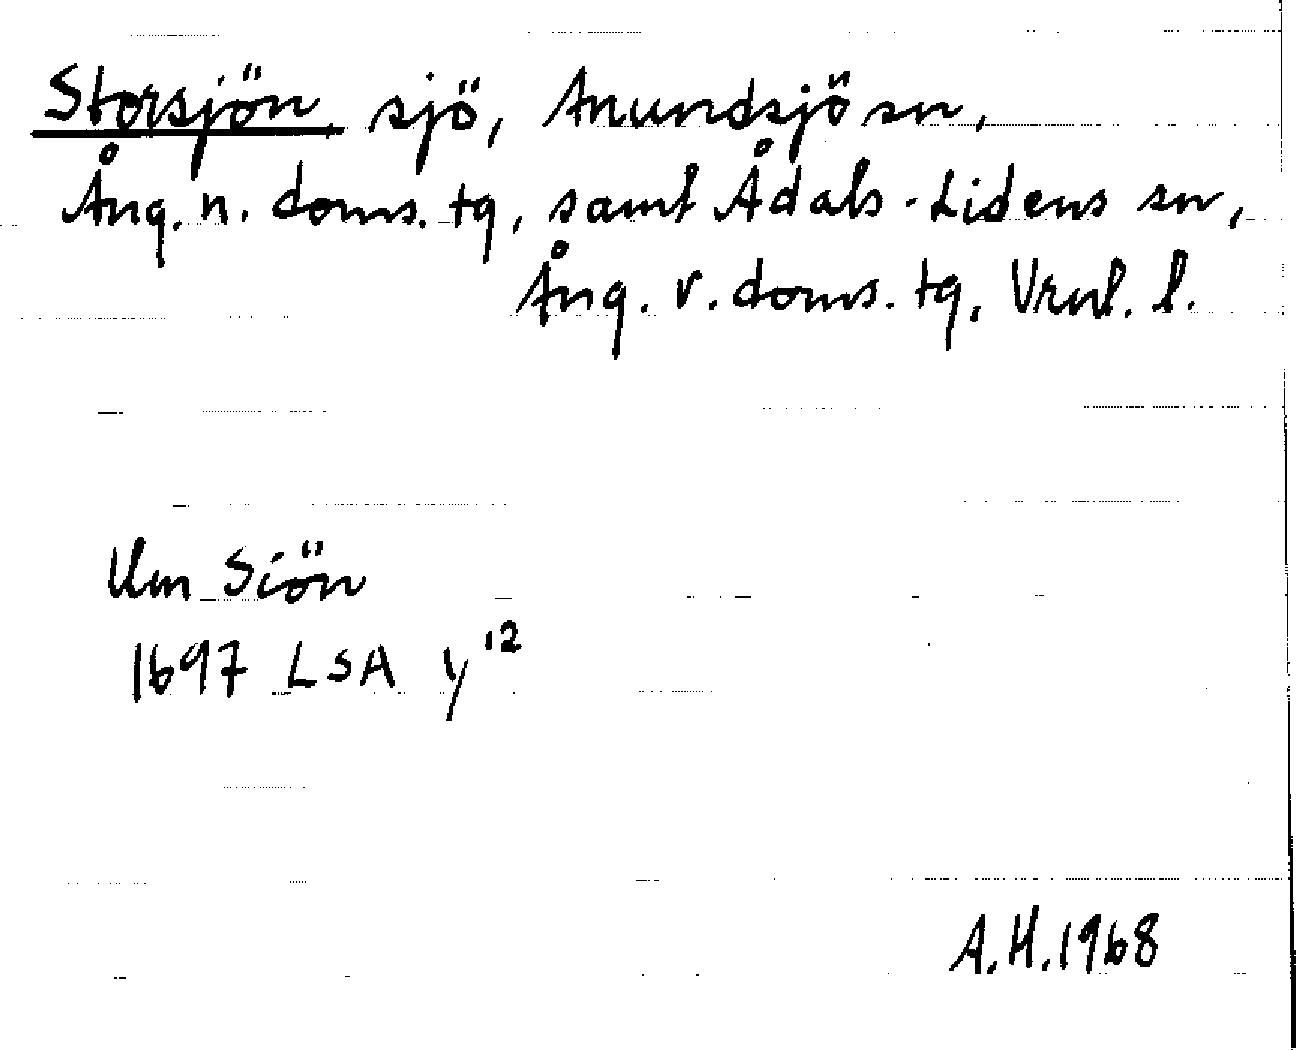 Storsjön, sjö, Anundsjö sn,
Ång. n. doms. tg, samt Ådals-Lidens sn,
Ång. v. doms. tg, Vrnl. l.
Um Siön
1697 LSA y¹²
A.H. 1968